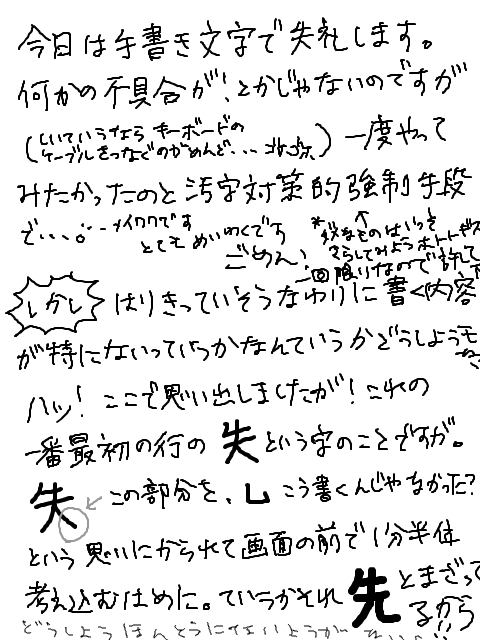 今日は手書き文字で失礼します。
何かの不具合が、とかじゃないのですが
(しいていうなら キーボードの
ケーブルをつなぐのがめんど... ゴホゴホ) 一度やって
みたかったのと汚字対策的強制手段
で...。 メイワクです
とても めいわくです
ごめん!
一回限りなので許して
しかし はりきっていそうなわりに書く内容
が特にないっていうかなんていうかどうしようもねェ
ハッ! ここで思い出しましたが! これの
一番最初の行の 失 という字のことですが。
失 ← この部分を、し こう書くんじゃなかった?
という思いにかられて画面の前で1分半体
考え込むはめに。ていうかそれ 先 とまざって
るから
どうしよう ほんとうにないようが